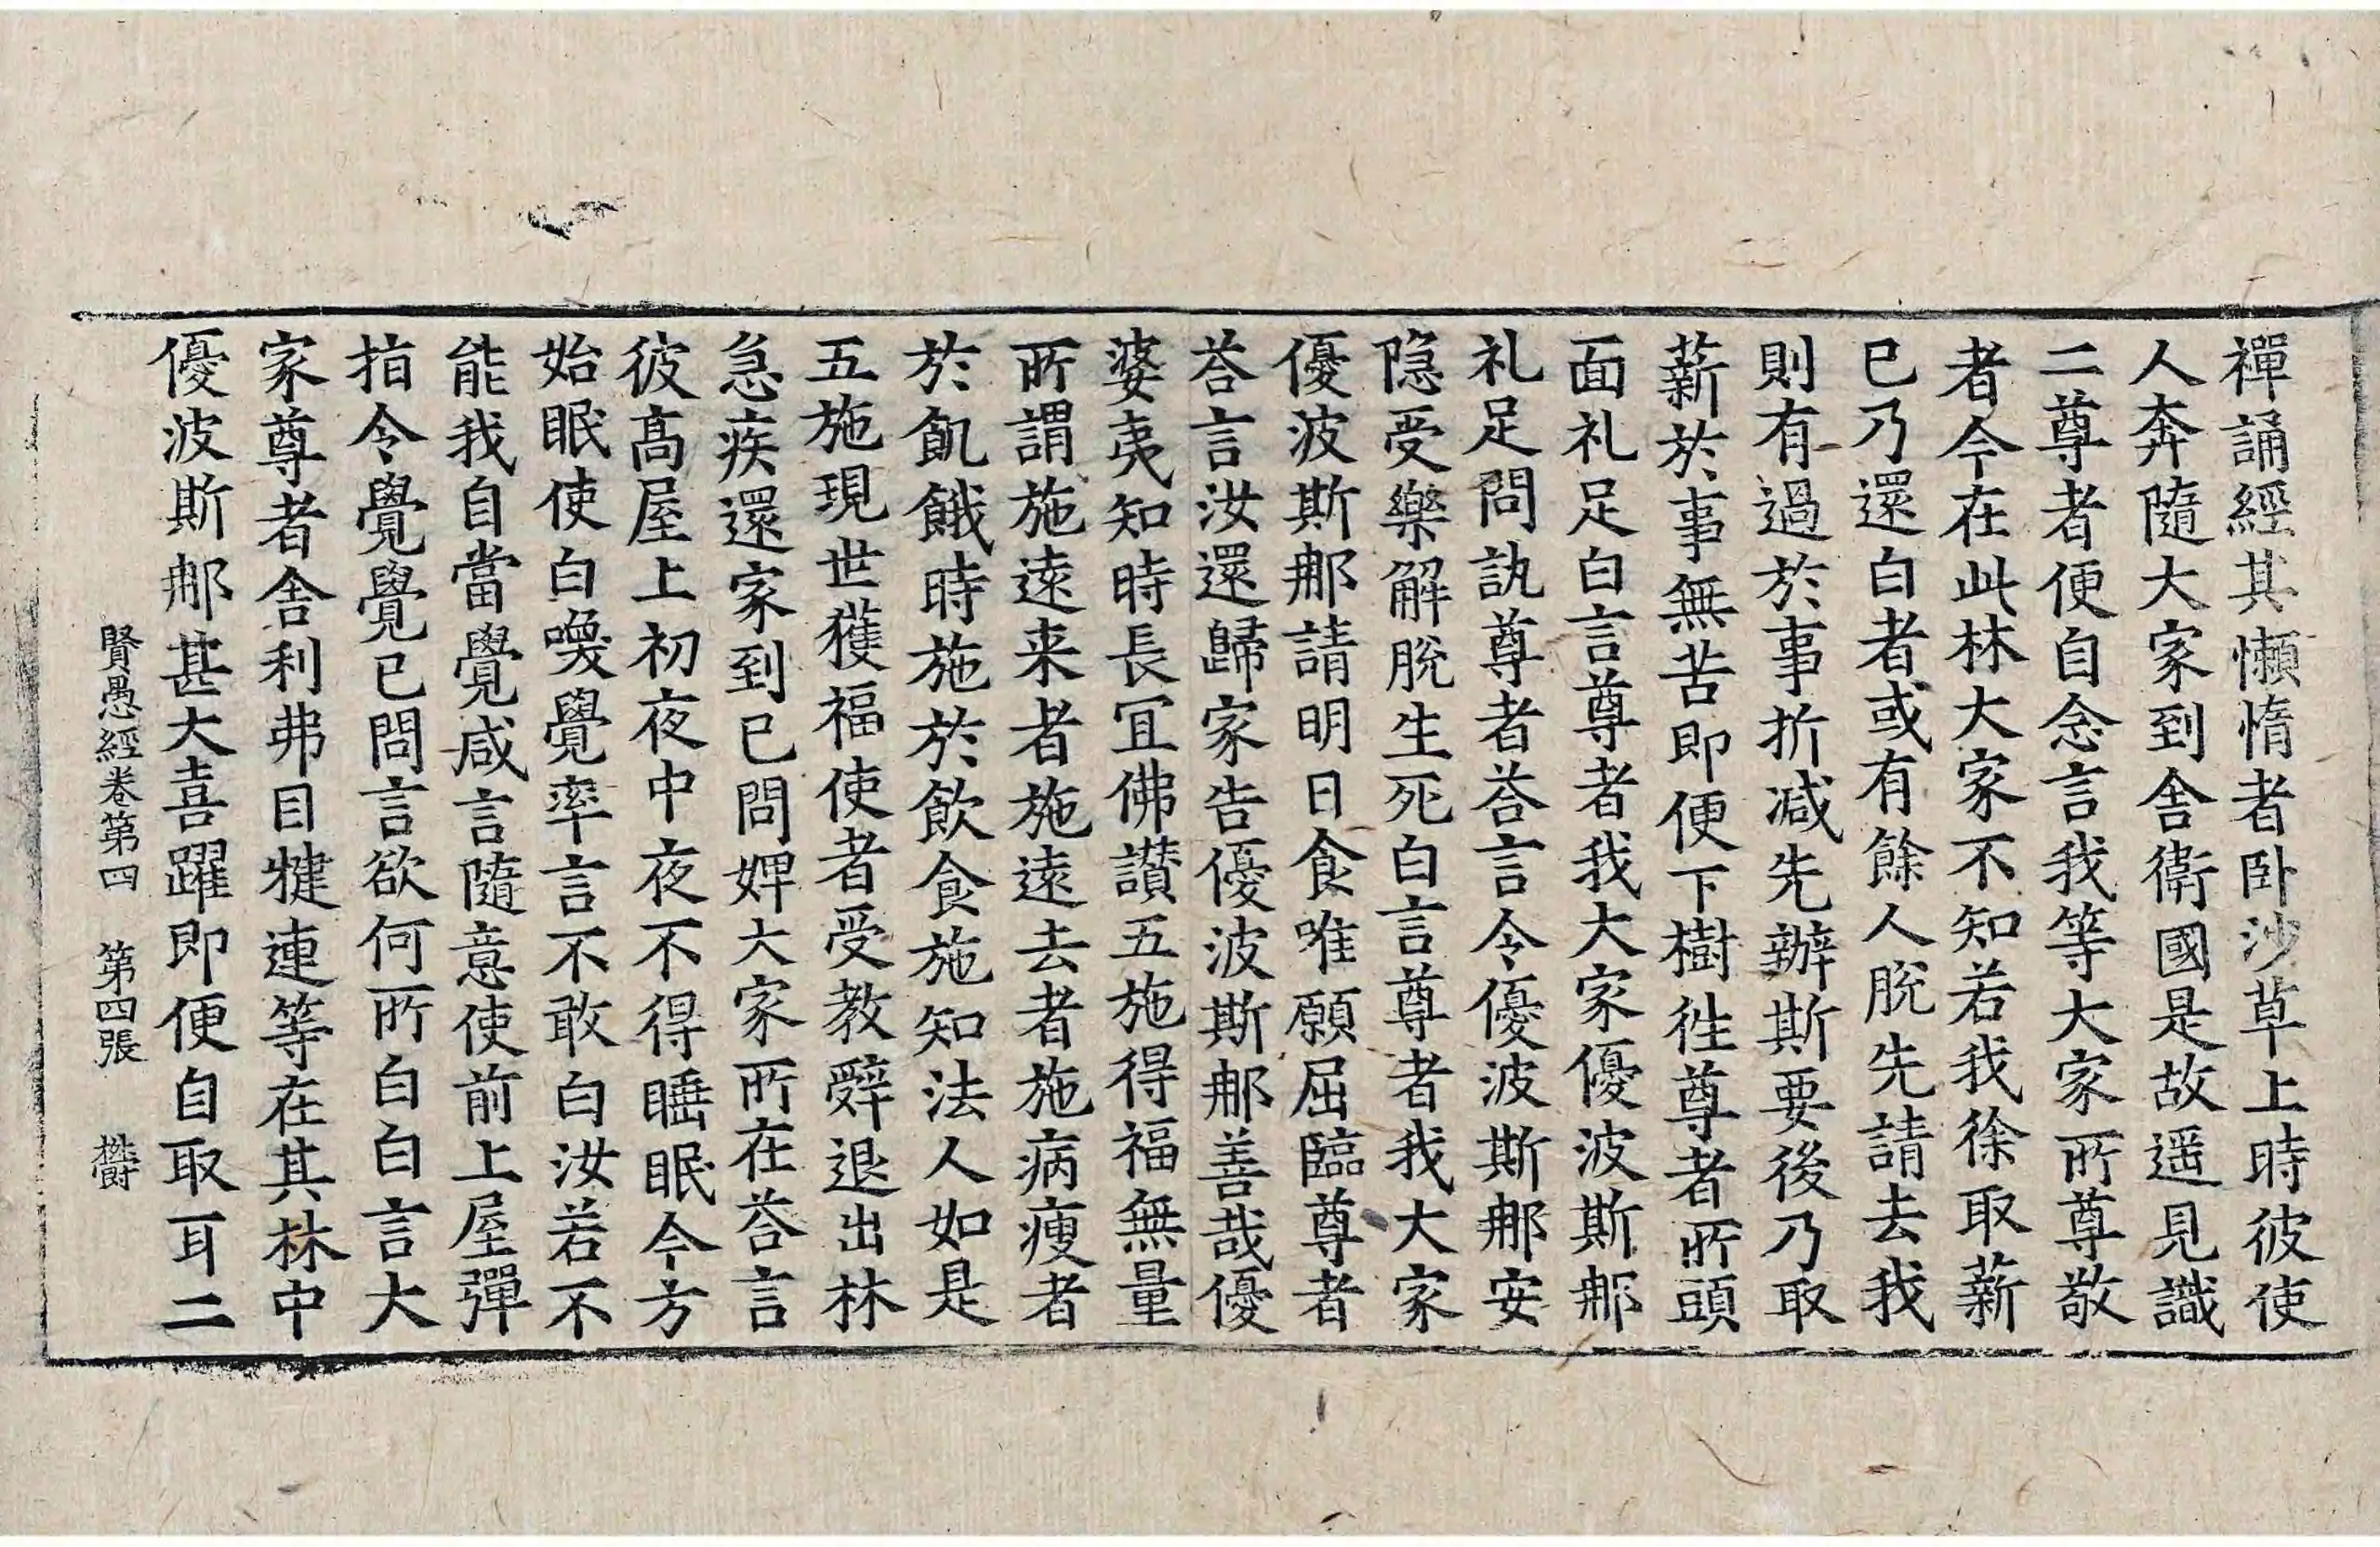 禪誦經其懶惰者卧沙草上時彼使
人奔隨大家到舎衛國是故遥見識
二尊者便自念言我等大家所尊敬
者今在此林大家不知若我徐取薪
已乃還白者或有餘人脫先請去我
則有過於事折减先辦斯要後乃取
薪於事無苦即便下樹徃尊者所頭
面礼足白言尊者我大家優波斯那
礼足問訊尊者荅言令優波斯那安
隐受樂解脫生死白言尊者我大家
優波斯那請明日食唯願屈臨尊者
荅言汝還歸家告優波斯那善哉優
婆夷知時長冝佛讃五施得福無量
所謂施逺来者施逺去者施病瘦者
於飢餓時施於飲食施知法人如是
五施現世獲福使者受教辝退出林
急疾還家到已問婢大家所在荅言
彼髙屋上初夜中夜不得睡眠今方
始眠使白喚覺率言不敢白汝若不
能我自當覺咸言隨意使前上屋彈
指令覺覺已問言欲何所白白言大
家尊者舎利弗目犍連等在其林中
優波斯那甚大喜躍即便自取耳二
賢愚經卷第四　第四張　欝